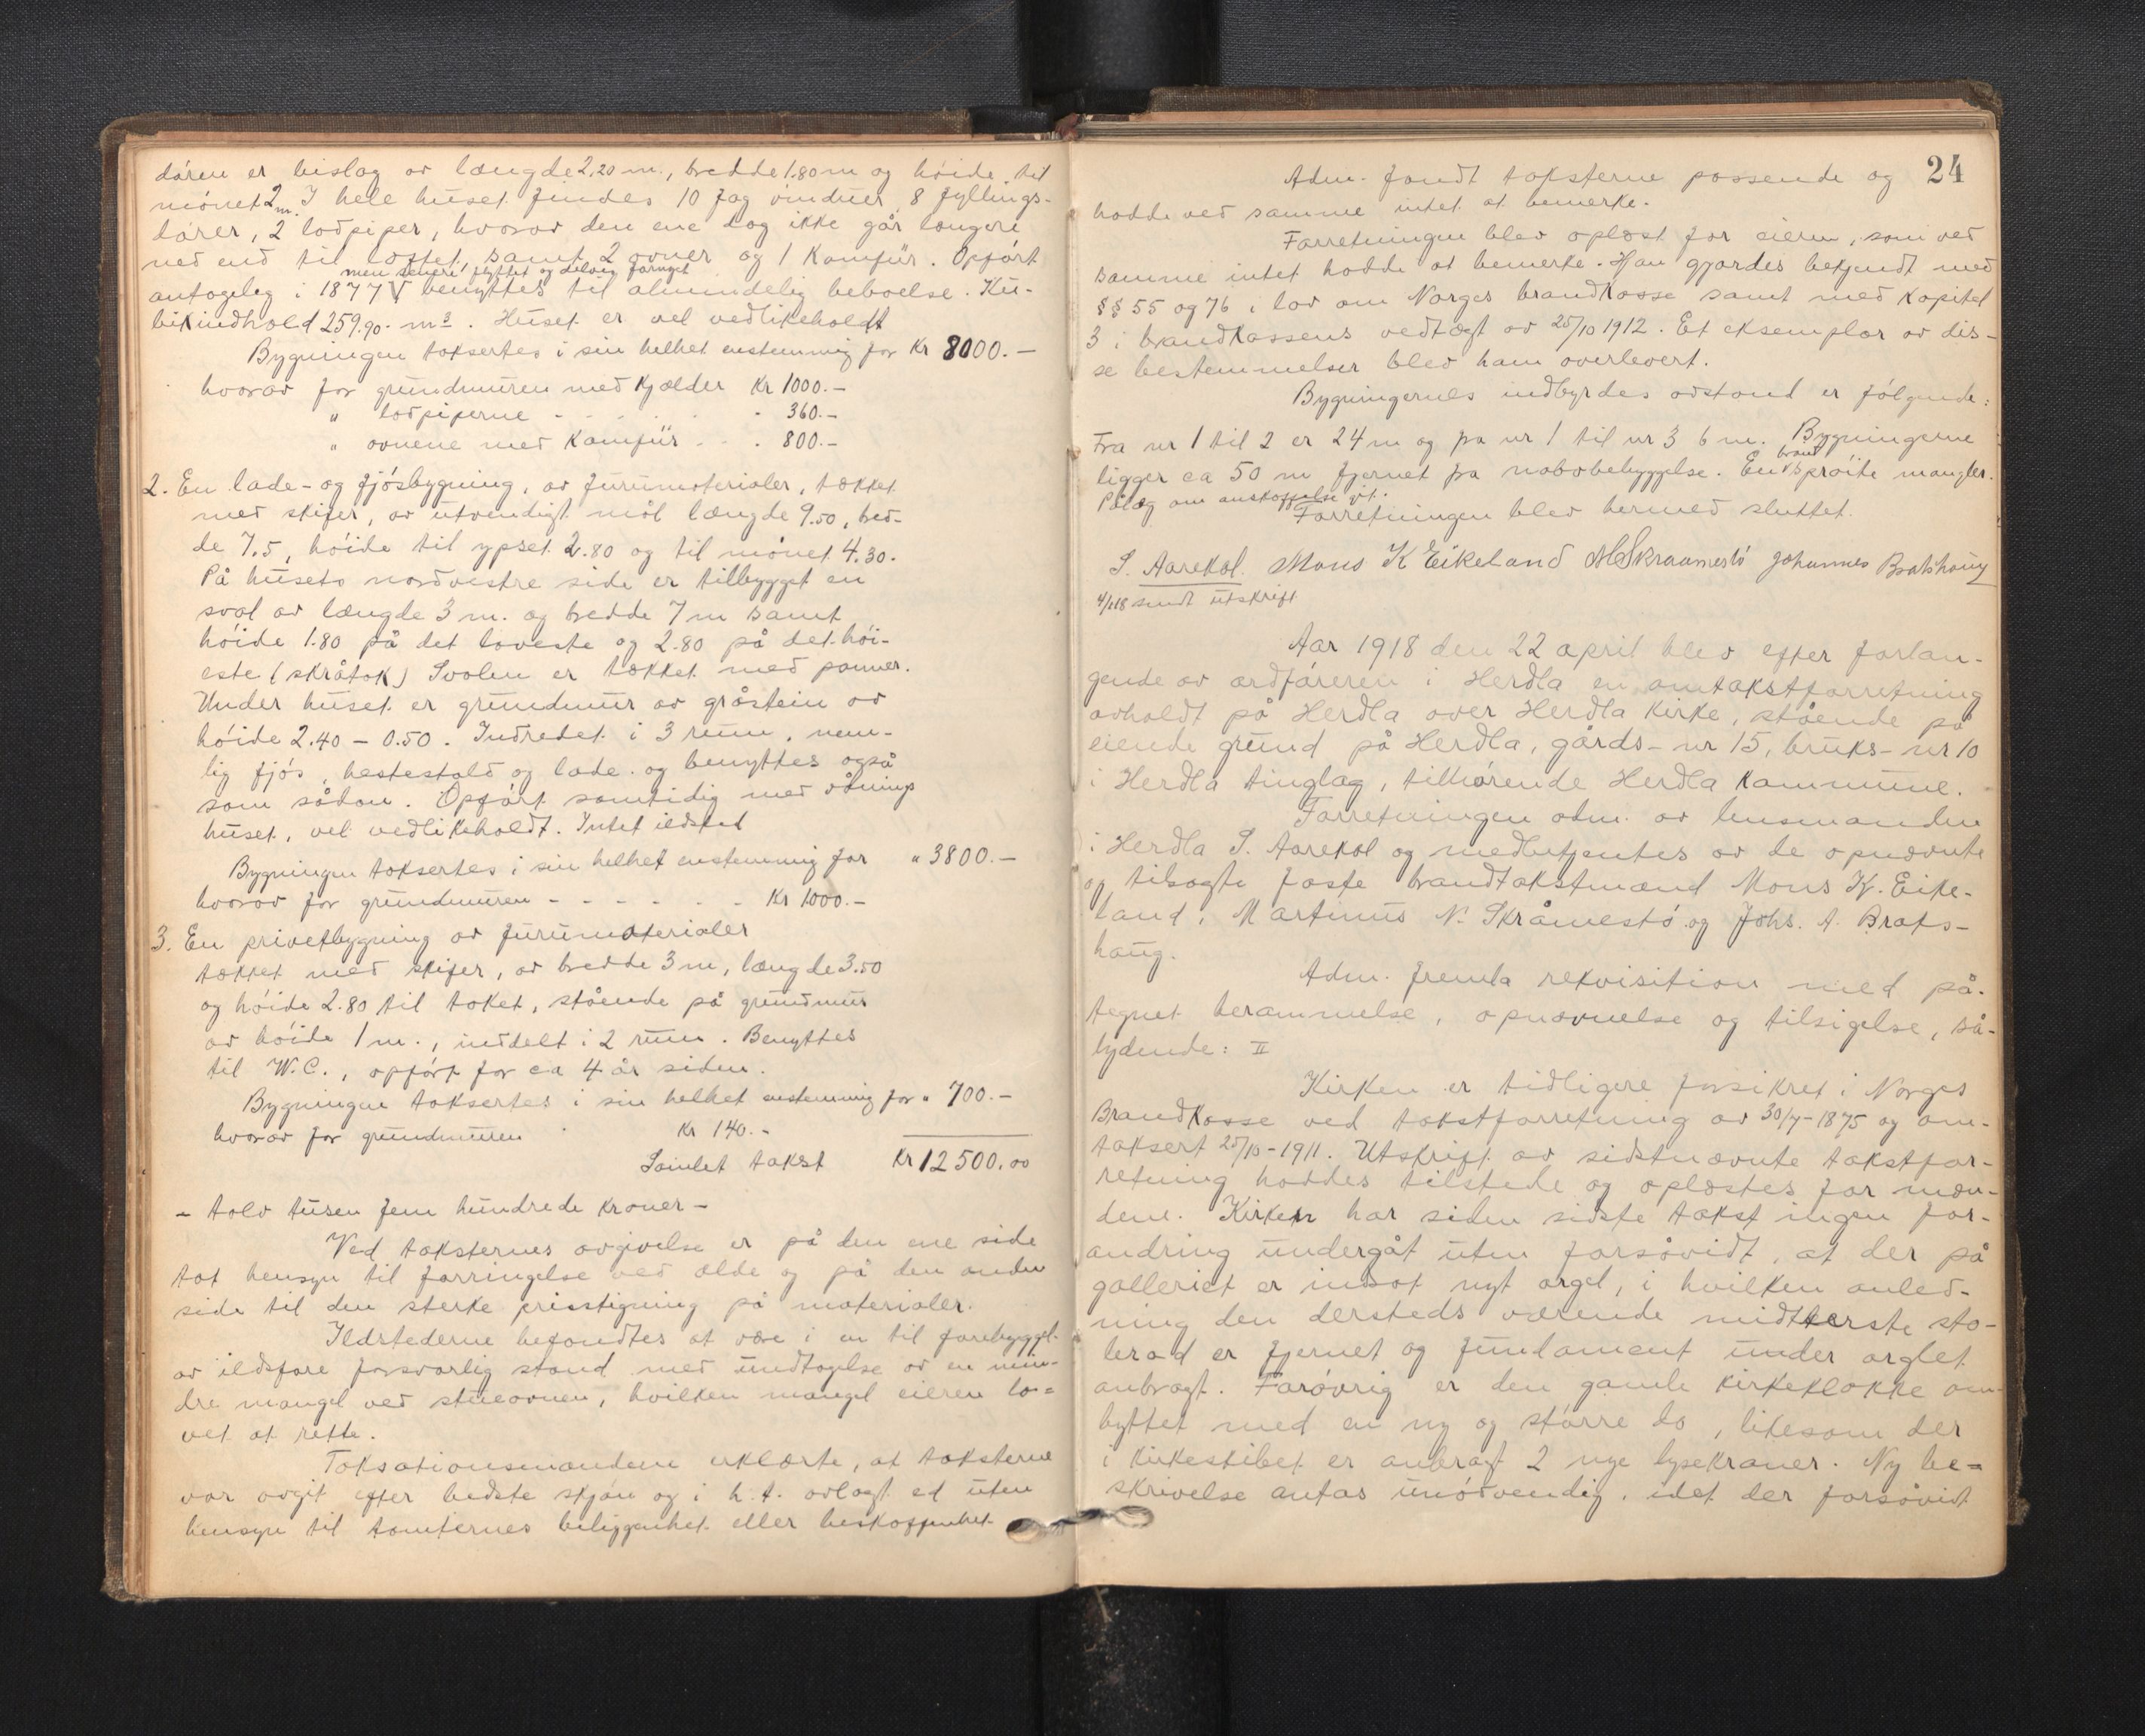 døren er bislag av længde 2,20 m., bredde 1.80 m og høide til
mønet 2 m. I hele huset findes 10 fag vinduer, 8 fyllings-
dører, 2 lodpiper, hvorav den ene dog ikke går længere
ned end til loftet, samt 2 ovner og 1 Komfür. Opført
men senere flyttet og delvis fornyet
antagelig i 1877 V benyttes til almindelig beboelse. Ku-
bikindhold 259.90. m3. Huset er vel vedlikeholdt
Bygningen taksertes i sin helhet enstemmig for Kr 8000.—
hvorav for grundmuren med Kjælder Kr 1000.—
" lodpiperne - - - - 360.—
" ovnene med Komfür - - - 800.—
2. En lade- og fjøsbygning, av furumaterialer, tækket
med skifer, av utvendigt mål længde 9.50, bred-
de 7.5, høide til gpset 2.80 og til mønet 4.30.
På husets nordvestre side er tilbygget en
sval av længde 3 m. og bredde 7 m samt
høide 1.80 på det laveste og 2.80 på det høi-
este (skråtak) Svalen er tækket med panner.
Under huset er grundmur av gråstein av
høide 2.40 – 0.50. Indredet i 3 rum, nem-
lig fjøs, hestestald og lade og benyttes også
som sådan. Opført samtidig med vånings
huset, vel vedlikeholdt. Intet ildsted
Bygningen taksertes i sin helhet enstemmig for " 3800.—
hvorav for grundmuren - - - - - - Kr 1000.—
3. En privetbygning av furumaterialer
tækket med skifer, av bredde 3 m, længde 3.50
og høide 2.80 til taket, stående på grundmur
av høide 1 m., inddelt i 2 rum. Benyttes
til W.C., opført for ca 4 år siden.
Bygningen taksertes i sin helhet enstemmig for " 700.—
hvorav for grundmuren Kr 140.-
Samlet takst Kr 12500.00
– tolv tusen fem hundrede kroner –
Ved taksternes avgivelse er på den ene side
tat hensyn til forringelse ved ælde og på den anden
side til den sterke prisstigning på materialer.
Ildstederne befandtes at være i en til forebyggel.
av ildsfare forsvarlig stand med undtagelse av en min-
dre mangel ved stueovnen, hvilken mangel eieren lo-
vet at rette.
Taksationsmændene erklærte, at taksterne
var avgit efter bedste skjøn og i h.t. avlagt ed uten
hensyn til tomternes beliggenhet eller beskaffenhet.
24
Adm. fandt taksterne passende og
hadde ved samme intet at bemerke.
Forretningen blev oplæst for eieren, som ved
samme intet hadde at bemerke. Han gjordes bekjendt med
§§ 55 og 76 i lov om Norges brandkasse samt med Kapitel
3 i brandkassens vedtægt av 25/10 1912. Et eksemplar av dis-
se bestemmelser blev ham overlevert.
Bygningernes indbyrdes avstand er følgende:
Fra nr 1 til 2 er 24 m og fra nr 1 til nr 3 6 m. Bygningerne
ligger ca 50 m fjernet fra nabobebyggelse. En brandsprøite mangler.
Pålæg om anskaffelse git.
Forretningen blev hermed sluttet.
S. Aarekol. Mons K Eikeland M Skraamestö Johannes Bratshaug
4/18 sendt utskrift
Aar 1918 den 22 april blev efter forlan-
gende av ordføreren i Herdla en omtakstforretning
avholdt på Herdla over Herdla Kirke, stående på
eiende grund på Herdla, gårds-nr 15, bruks-nr 10
i Herdla tinglag, tilhørende Herdla Kommune.
Forretningen adm. av lensmanden
i Herdla S. Aarekol og medbetjentes av de opnævnte
og tilsagte faste brandtakstmænd Mons K. Eike-
land, Martinus N. Skråmestø og Johs. A. Brats-
haug.
Adm. fremla rekvisition med på-
tegnet berammelse, opnævnelse og tilsigelse, så-
lydende: II
Kirken er tidligere forsikret i Norges
Brandkasse ved takstforretning av 30/7-1875 og om-
taksert 25/10-1911. Utskrift av sidstnævnte takstfor-
retning haddes tilstede og oplæstes for mæn-
dene. Kirken har siden sidste takst ingen for-
andring undergåt uten forsåvidt, at der på
galleriet er indsat nyt orgel, i hvilken anled-
ning den dersteds værende midtterste sto-
lerad er fjernet og fundament under orglet
anbragt. Forøvrig er den gamle kirkeklokke om-
byttet med en ny og større do, likesom der
i kirkeskibet er anbragt 2 nye lysekroner. Ny be-
skrivelse antas unødvendig, idet der forsåvidt